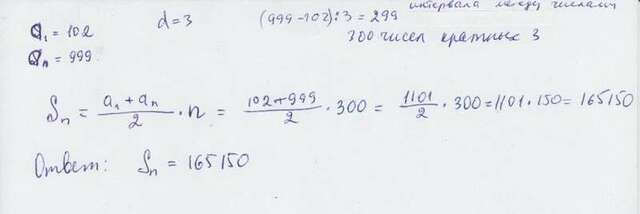 a₁ = 102 d=3 (999-102):3 = 299 интервала между числами
aₙ = 999 300 чисел кратных 3
Sₙ = (a₁ + aₙ)/2 · n = (102+999)/2 · 300 = 1101/2 · 300 = 1101 · 150 = 165150
Ответ: Sₙ = 165150